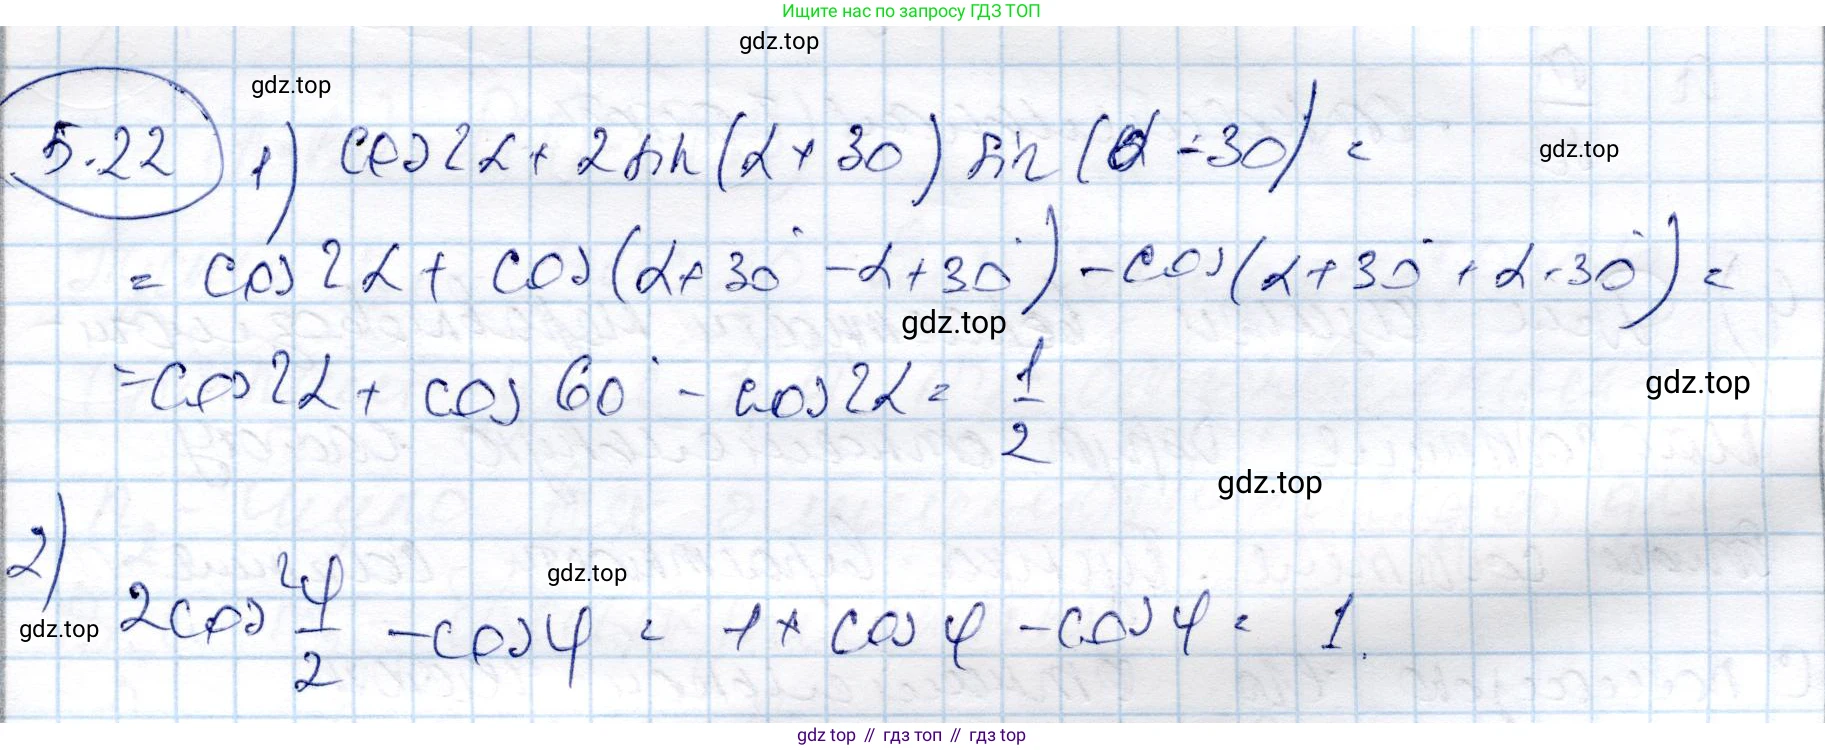 Ищите нас по запросу ГДЗ ТОП
gdz.top
gdz.top
5.22 1) cos2α + 2sin(α + 30) sin(α - 30) =
gdz.top
= cos2α + cos(α + 30° - α + 30°) - cos(α + 30° + α - 30°) =
gdz.top
= cos2α + cos 60° - cos2α = 1/2
gdz.top
gdz.top
2) 2cos² φ/2 - cosφ = 1 + cosφ - cosφ = 1.
gdz.top
gdz.top
gdz top // гдз топ // gdz.top